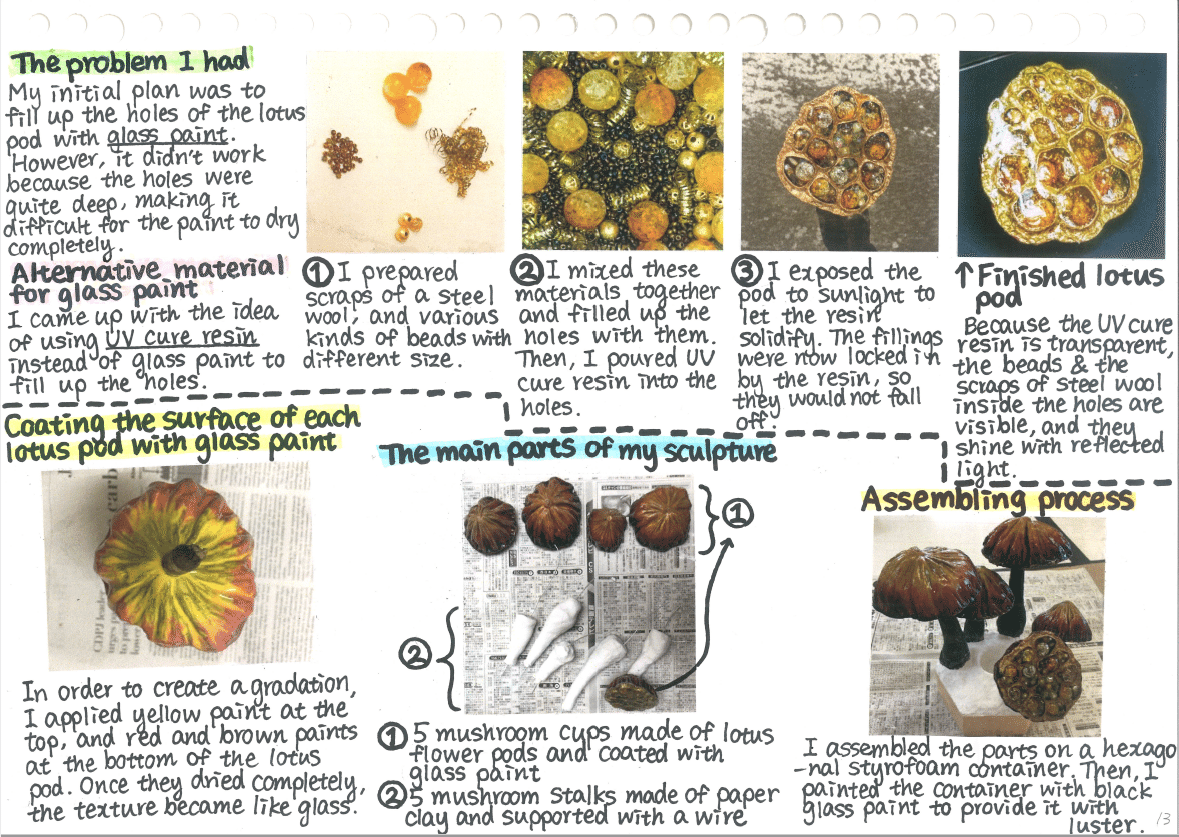 The problem I had
My initial plan was to
fill up the holes of the lotus
pod with glass paint.
However, it didn't work
because the holes were
quite deep, making it
difficult for the paint to dry
completely.
Alternative material
for glass paint
I came up with the idea
of using UV cure resin
instead of glass paint to
fill up the holes.
① I prepared
scraps of a steel
wool, and various
kinds of beads with
different size.
② I mixed these
materials together
and filled up the
holes with them.
Then, I poured UV
cure resin into the
holes.
③ I exposed the
pod to sunlight to
let the resin
solidify. The fillings
were now locked in
by the resin, so
they would not fall
off.
↑ Finished lotus
pod
Because the UV cure
resin is transparent,
the beads & the
scraps of steel wool
inside the holes are
visible, and they
shine with reflected
light.
Coating the surface of each
lotus pod with glass paint
In order to create a gradation,
I applied yellow paint at the
top, and red and brown paints
at the bottom of the lotus
pod. Once they dried completely,
the texture became like glass.
The main parts of my sculpture
①
②
① 5 mushroom cups made of lotus
flower pods and coated with
glass paint
② 5 mushroom stalks made of paper
clay and supported with a wire
Assembling process
I assembled the parts on a hexago
-nal styrofoam container. Then, I
painted the container with black
glass paint to provide it with
luster.
13